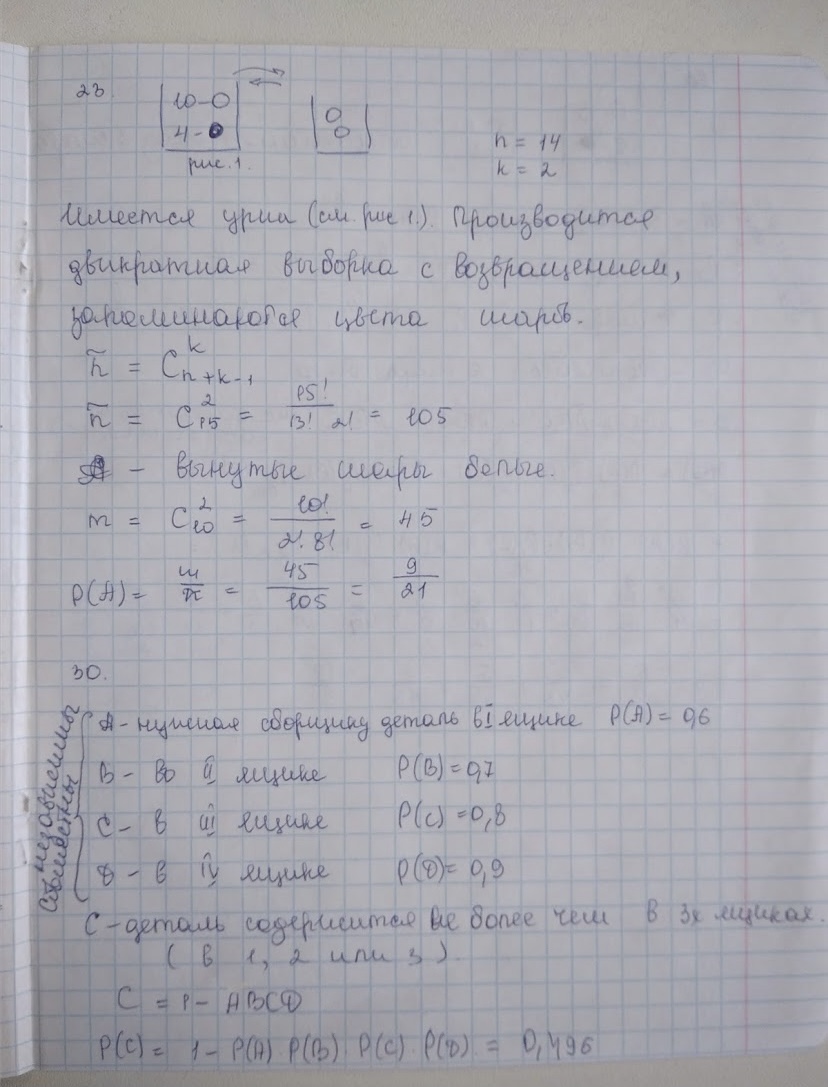 23.
10-O
4-O
рис. 1.
n = 14
k = 2
Имеется урна (см. рис 1.). Производится
двукратная выборка с возвращением,
запоминаются цвета шаров.
ñ = C^k_{n+k-1}
ñ = C^2_{15} = 15! / 13! 2! = 105
A - вынутые шары белые.
m = C^2_{10} = 10! / 2! 8! = 45
P(A) = m/ñ = 45/105 = 9/21
30.
независимы
совместны
A - нужная сборщику деталь в I ящике P(A) = 0,6
B - во II ящике P(B) = 0,7
C - в III ящике P(C) = 0,8
D - в IV ящике P(D) = 0,9
C - деталь содержится не более чем в 3х ящиках.
( в 1, 2 или 3 ).
C = 1 - ABCD
P(C) = 1 - P(A) P(B) P(C) P(D) = 0,496